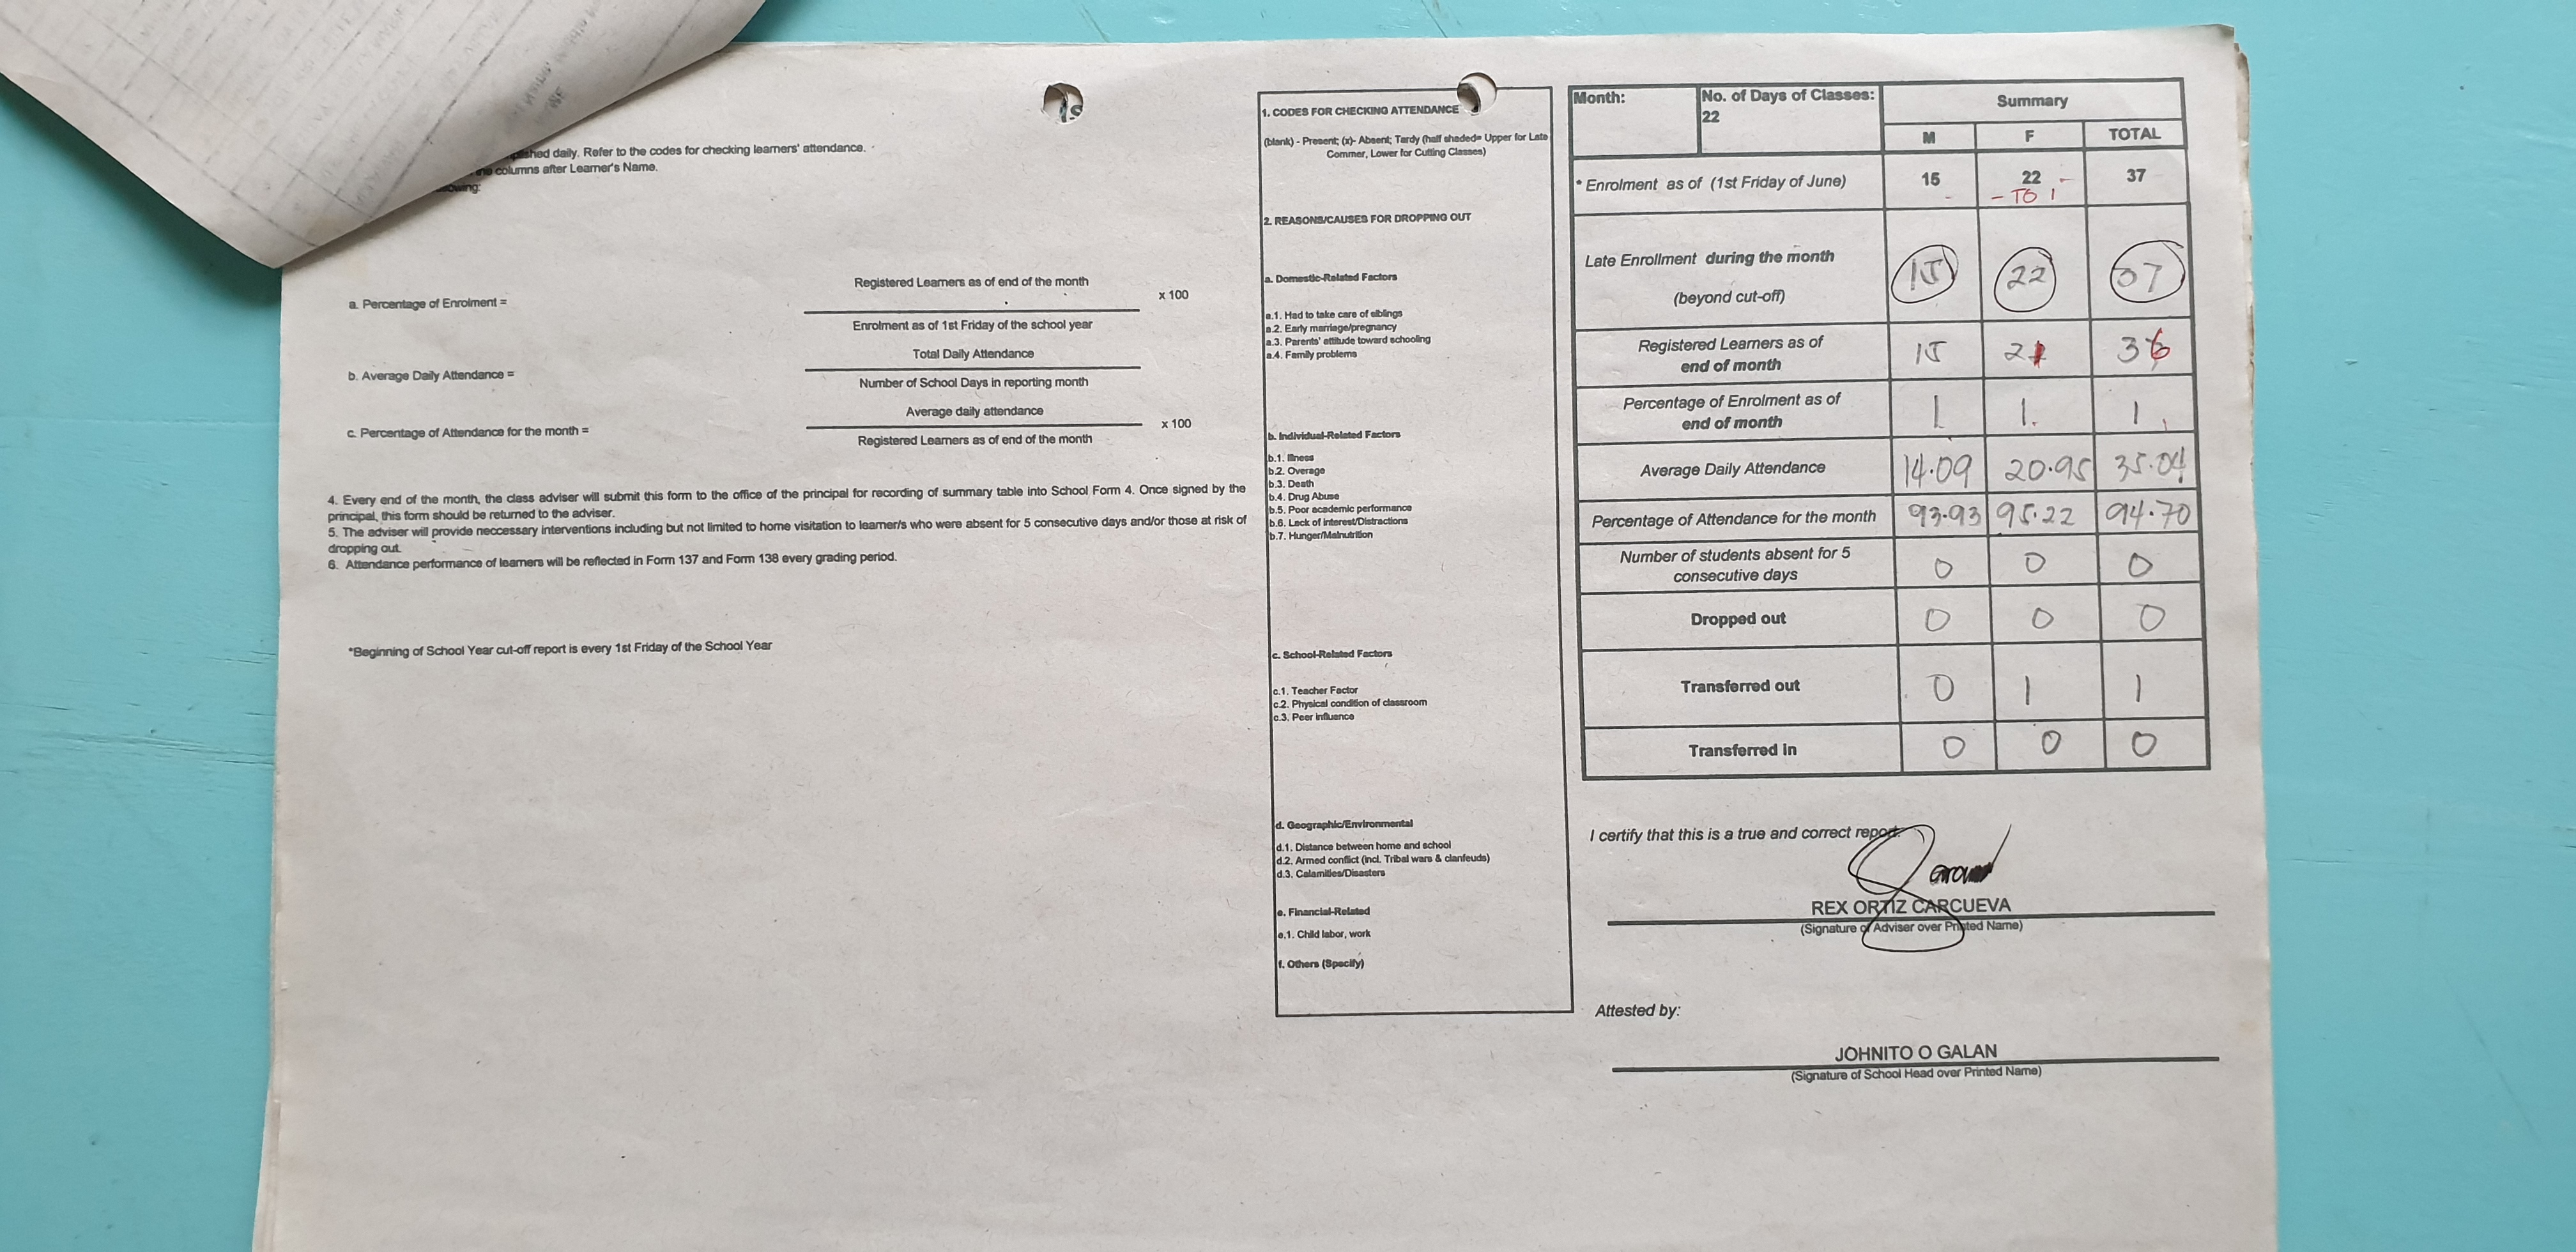 shed daily. Refer to the codes for checking learners' attendance.
columns after Learner's Name.
owing:
a. Percentage of Enrolment =
Registered Learners as of end of the month
x 100
Enrolment as of 1st Friday of the school year
b. Average Daily Attendance =
Total Daily Attendance
Number of School Days in reporting month
c. Percentage of Attendance for the month =
Average daily attendance
x 100
Registered Learners as of end of the month
4. Every end of the month, the class adviser will submit this form to the office of the principal for recording of summary table into School Form 4. Once signed by the
principal, this form should be returned to the adviser.
5. The adviser will provide neccessary interventions including but not limited to home visitation to learner/s who were absent for 5 consecutive days and/or those at risk of
dropping out.
6. Attendance performance of learners will be reflected in Form 137 and Form 138 every grading period.
*Beginning of School Year cut-off report is every 1st Friday of the School Year
1. CODES FOR CHECKING ATTENDANCE
(blank) - Present; (x)- Absent; Tardy (half shaded= Upper for Late
Commer, Lower for Cutting Classes)
2. REASONS/CAUSES FOR DROPPING OUT
a. Domestic-Related Factors
a.1. Had to take care of siblings
a.2. Early marriage/pregnancy
a.3. Parents' attitude toward schooling
a.4. Family problems
b. Individual-Related Factors
b.1. Illness
b.2. Overage
b.3. Death
b.4. Drug Abuse
b.5. Poor academic performance
b.6. Lack of interest/Distractions
b.7. Hunger/Malnutrition
c. School-Related Factors
c.1. Teacher Factor
c.2. Physical condition of classroom
c.3. Peer influence
d. Geographic/Environmental
d.1. Distance between home and school
d.2. Armed conflict (incl. Tribal wars & clanfeuds)
d.3. Calamities/Disasters
e. Financial-Related
e.1. Child labor, work
f. Others (Specify)
Month:
No. of Days of Classes:
22
Summary
M F TOTAL
* Enrolment as of (1st Friday of June) 15 22 37
- TO 1
Late Enrollment during the month
(beyond cut-off)
15 22 37
Registered Learners as of
end of month
15 21 36
Percentage of Enrolment as of
end of month
1 1. 1
Average Daily Attendance 14.09 20.95 35.04
Percentage of Attendance for the month 93.93 95.22 94.70
Number of students absent for 5
consecutive days
0 0 0
Dropped out 0 0 0
Transferred out 0 1 1
Transferred in 0 0 0
I certify that this is a true and correct report.
REX ORTIZ CARCUEVA
(Signature of Adviser over Printed Name)
Attested by:
JOHNITO O GALAN
(Signature of School Head over Printed Name)